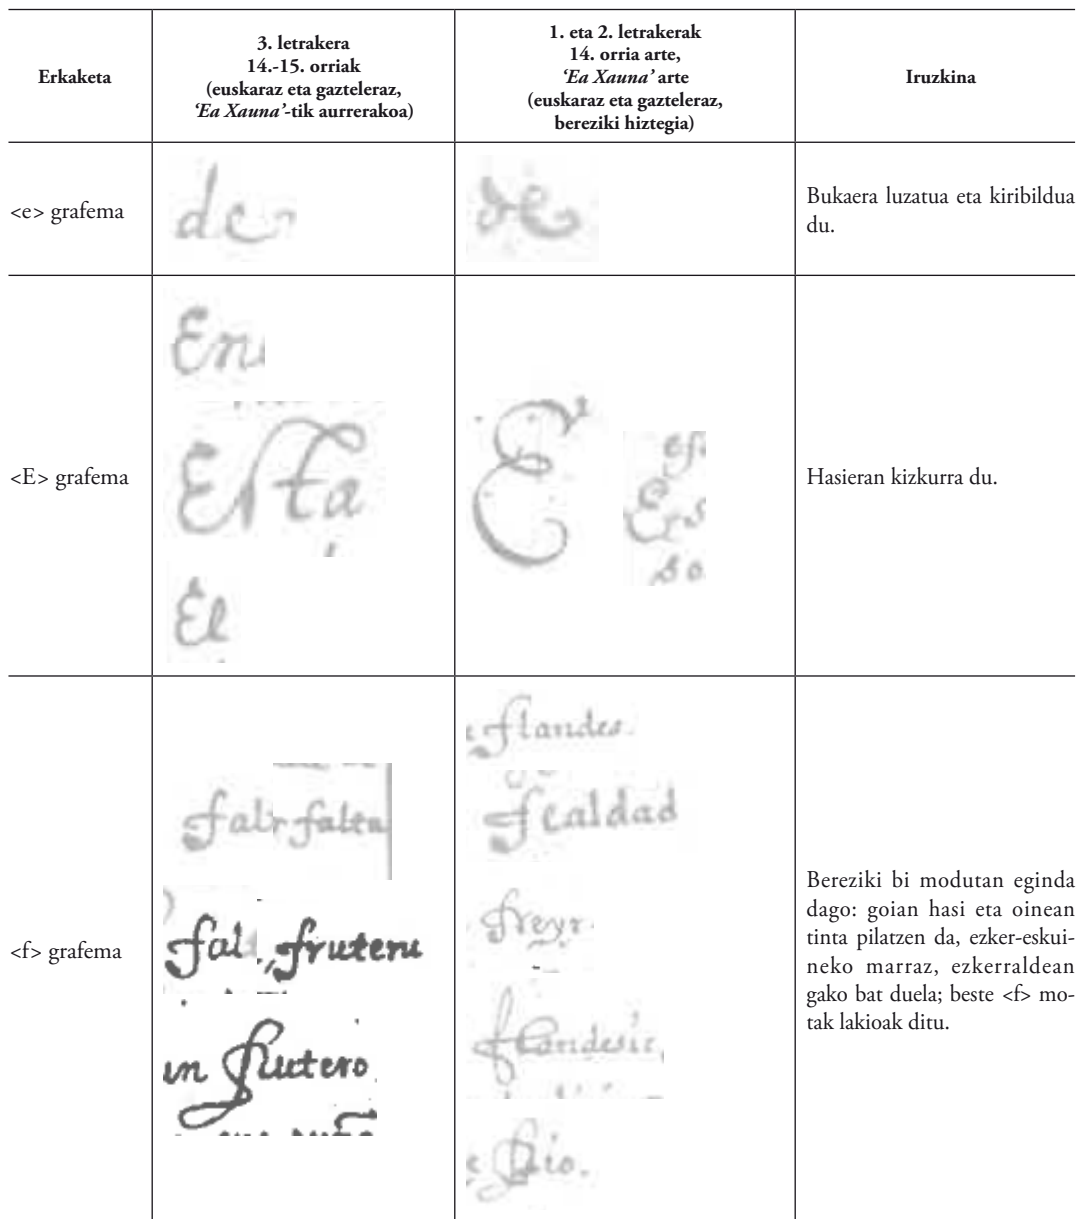 Erkaketa
3. letrakera
14.-15. orriak
(euskaraz eta gazteleraz,
‘Ea Xauna’-tik aurrerakoa)
1. eta 2. letrakerak
14. orria arte,
‘Ea Xauna’ arte
(euskaraz eta gazteleraz,
bereziki hiztegia)
Iruzkina
<e> grafema
de
de
Bukaera luzatua eta kiribildua
du.
<E> grafema
En
Esta
El
E
Hasieran kizkurra du.
<f> grafema
fal
falta
fal
fruteru
un frutero
flandes.
fealdad
freyr
flandesic
frio.
Bereziki bi modutan eginda
dago: goian hasi eta oinean
tinta pilatzen da, ezker-eskui-
neko marraz, ezkerraldean
gako bat duela; beste <f> mo-
tak lakioak ditu.